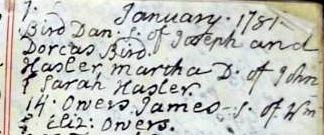 7. January. 1781
Bird Dan: S. of Joseph and
Dorcas Bird.
Hasler martha D: of John
& Sarah Hasler.
14. Owers James S. of Wm
& Eliz: Owers.